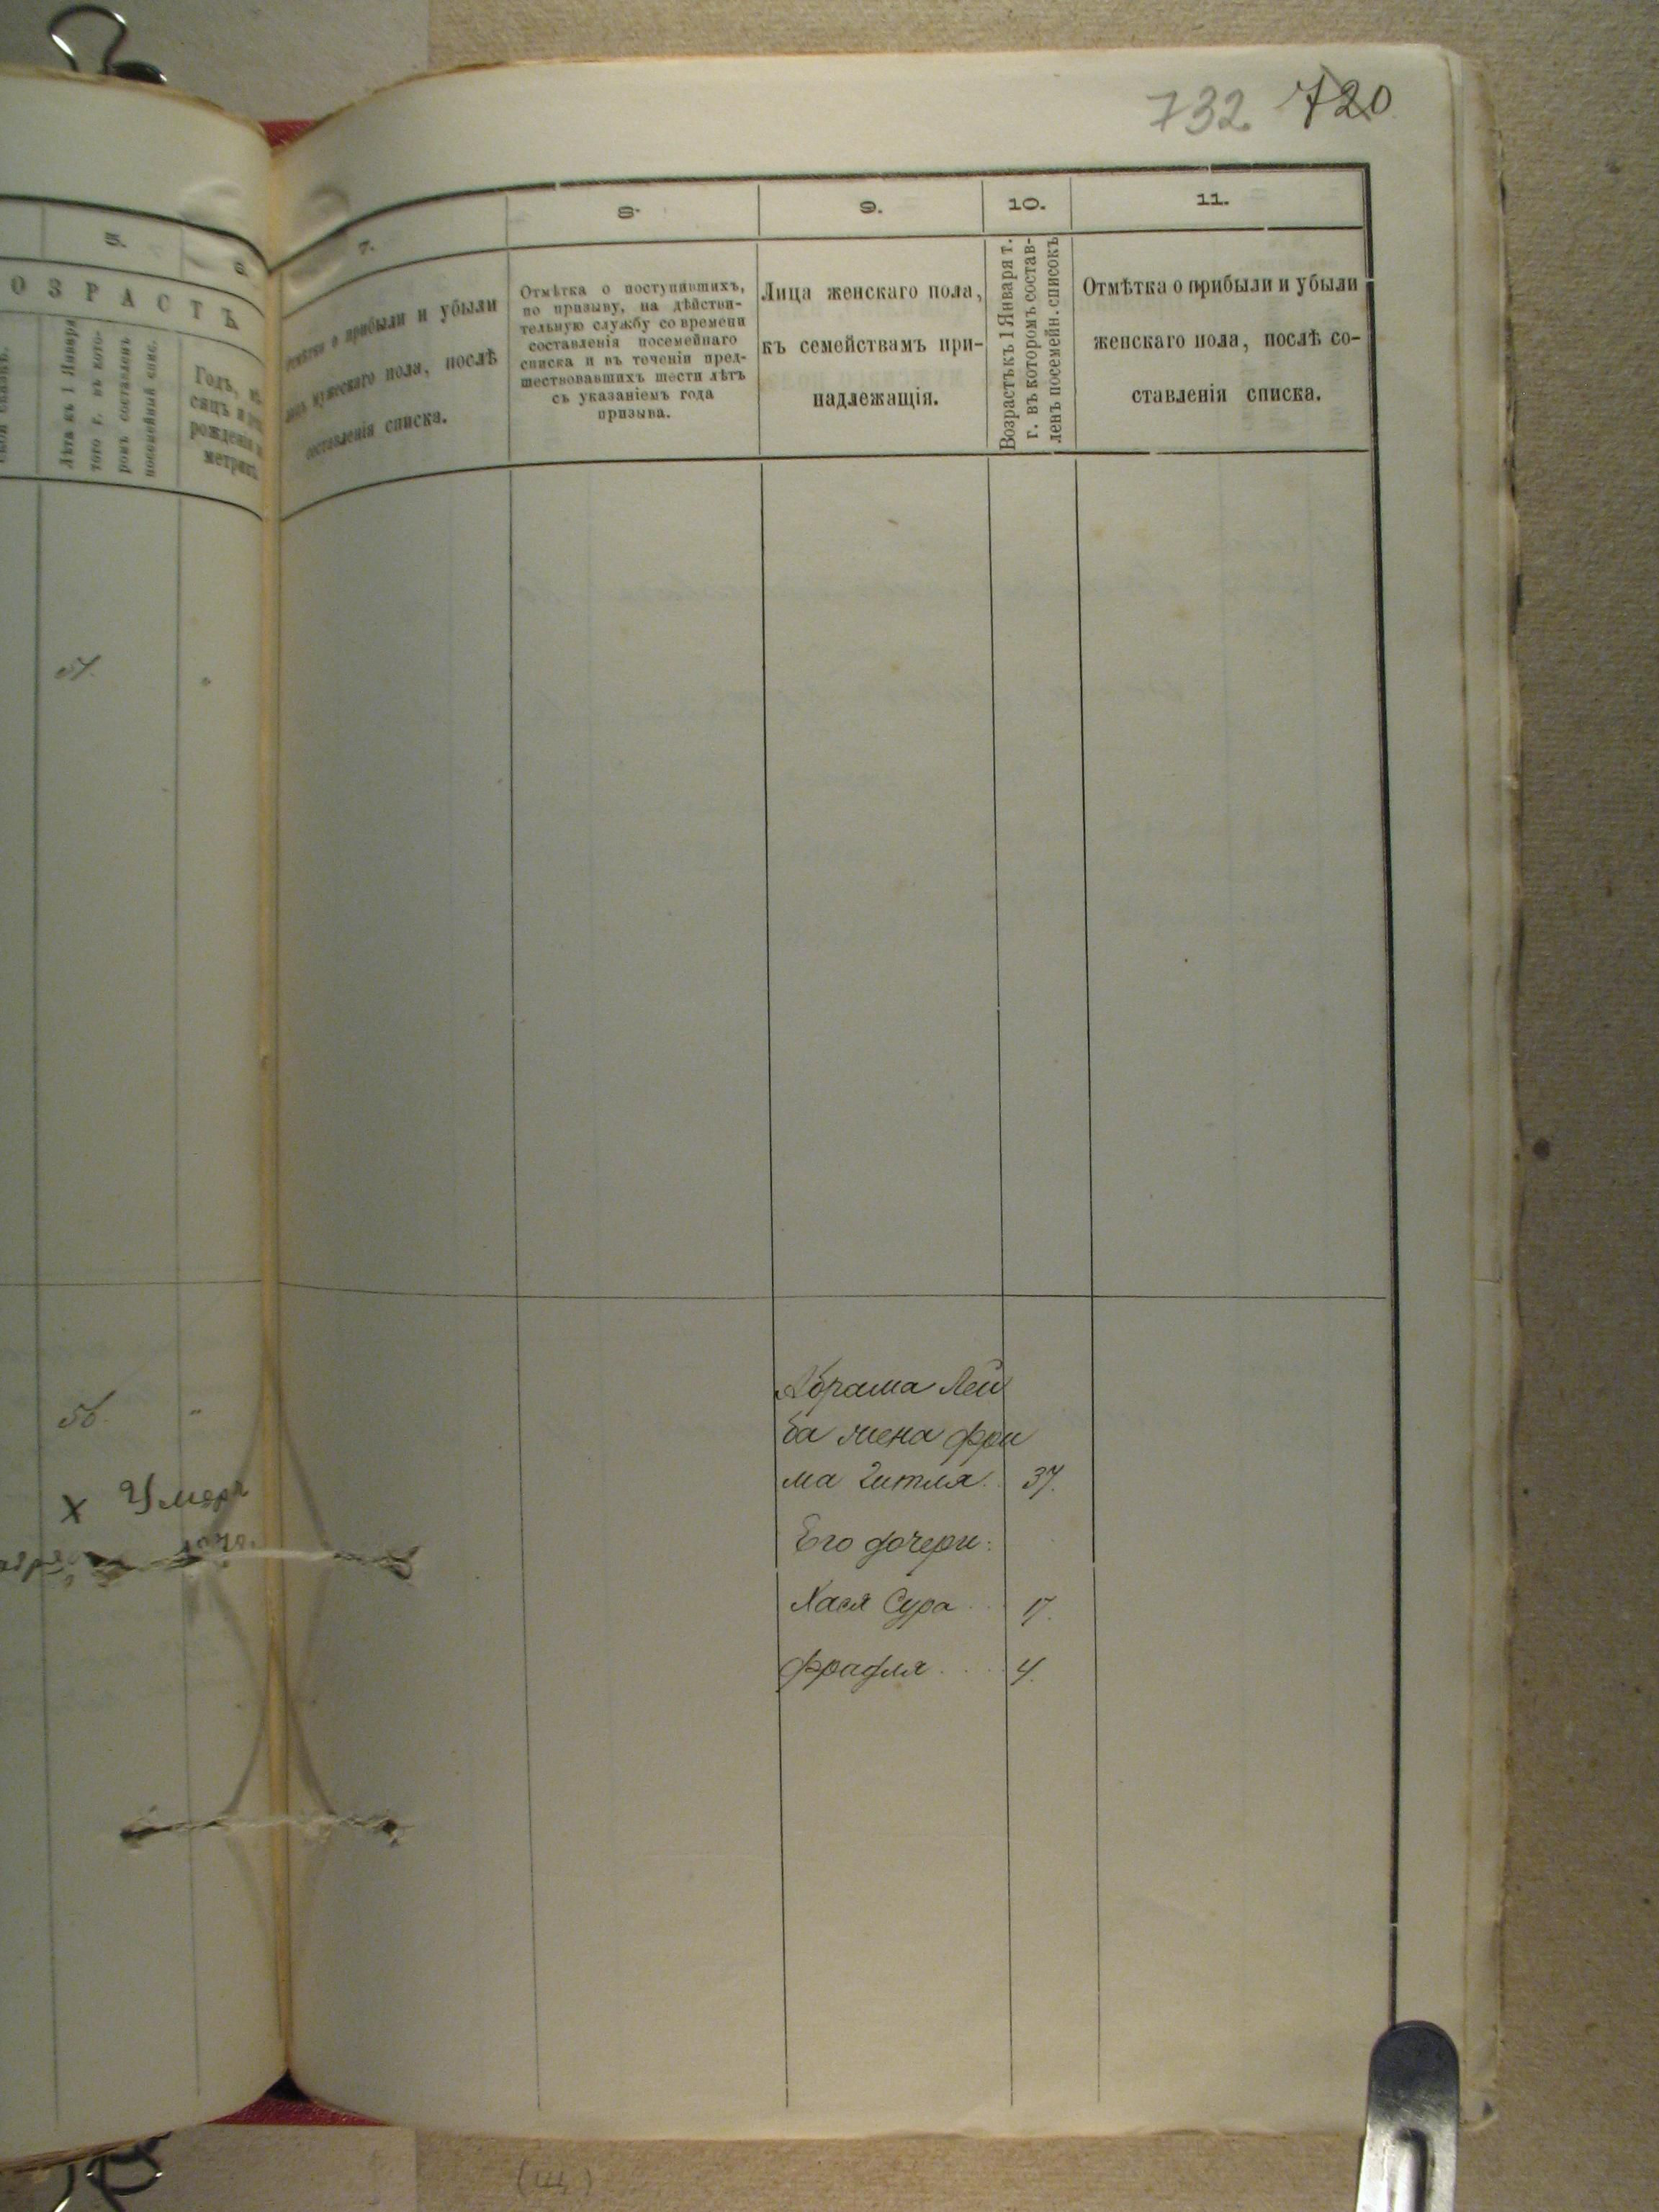 732. 720
5.
6.
ОЗРАСТЪ
Лѣта къ 1 Января
того г. въ кото-
ромъ составленъ
посемейный спис.
Годъ, мѣ-
сяцъ и
рожденія
метрик
54.
56.
"
х Умеръ
7.
о прибыли и убыли
лицъ мужескаго пола, послѣ
составленія списка.
8.
Отмѣтка о поступившихъ,
по призыву, на дѣйстви-
тельную службу со времени
составленія посемейнаго
списка и въ теченіи пред-
шествовавшихъ шести лѣтъ
съ указаніемъ года
призыва.
9.
Лица женскаго пола,
къ семействамъ при-
надлежащія.
10.
Возрастъ къ 1 Января т.
г. въ которомъ состав-
ленъ посемейн. списокъ
11.
Отмѣтка о прибыли и убыли
женскаго пола, послѣ со-
ставленія списка.
Абрама Лей
ба жена Фри
ма Гитля. 37.
Его дочери:
Хася Сура . . 17.
Фрадля . . . . 4.